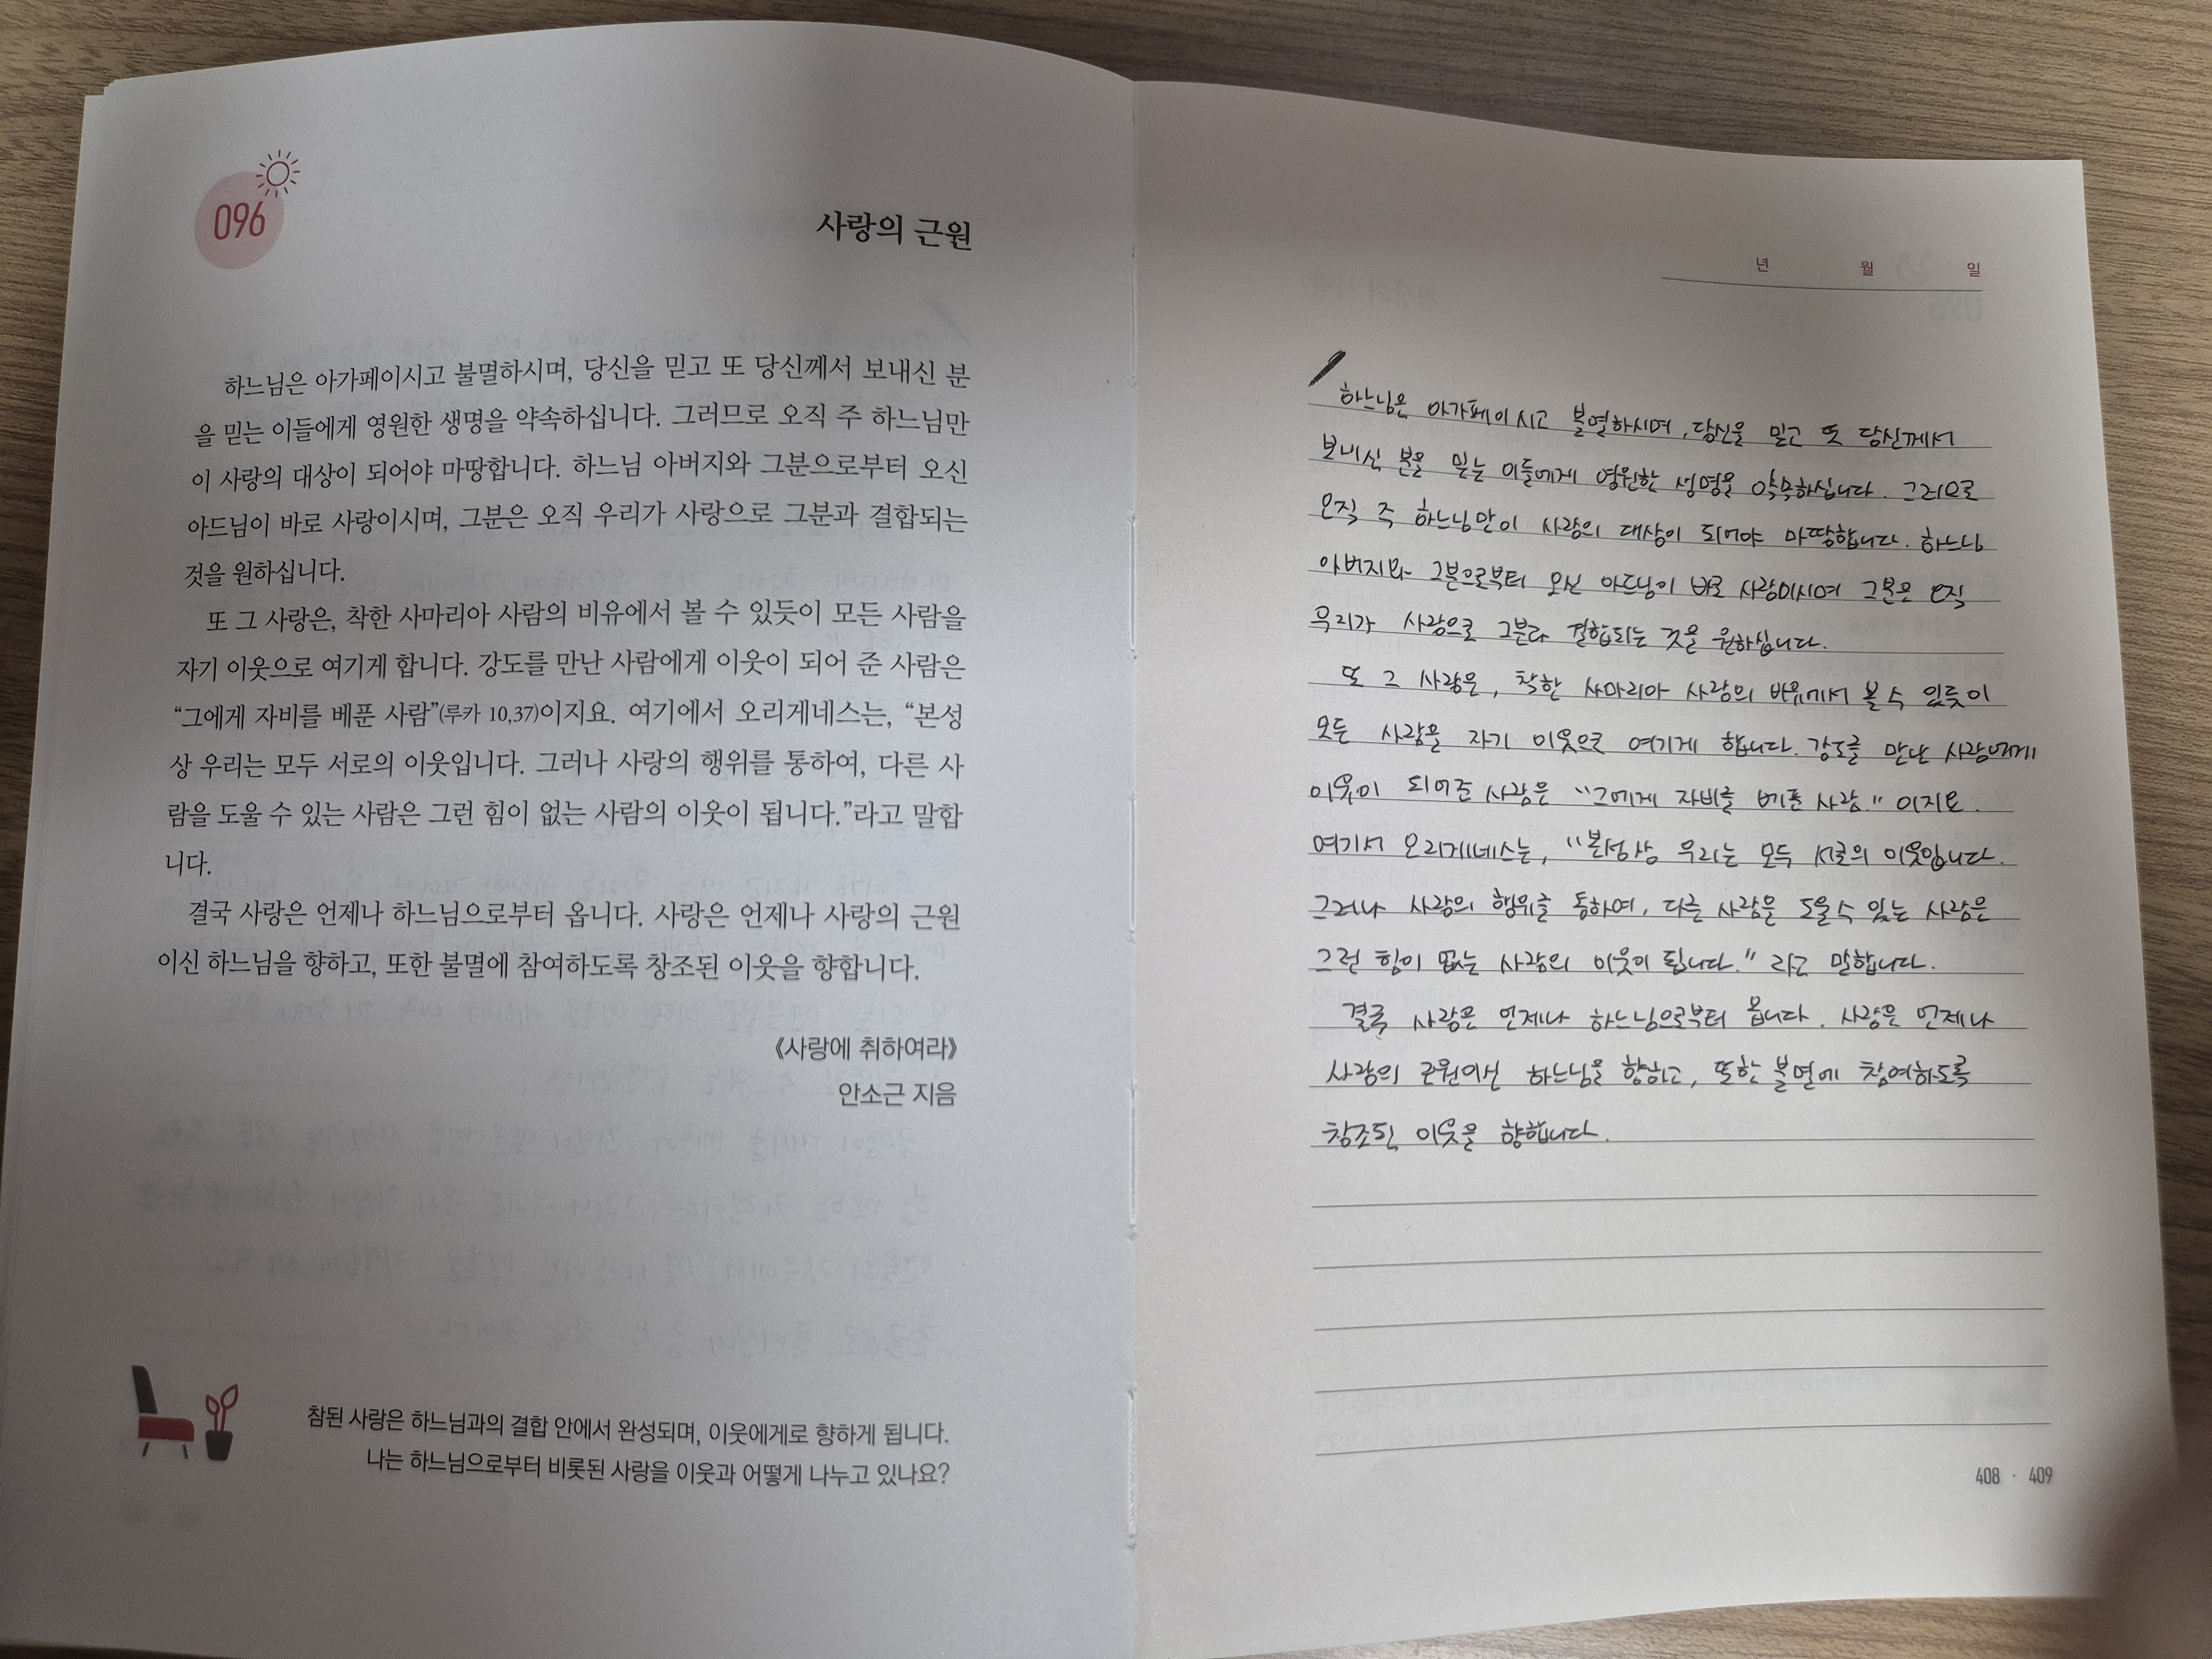 096
사랑의 근원
하느님은 아가페이시고 불멸하시며, 당신을 믿고 또 당신께서 보내신 분
을 믿는 이들에게 영원한 생명을 약속하십니다. 그러므로 오직 주 하느님만
이 사랑의 대상이 되어야 마땅합니다. 하느님 아버지와 그분으로부터 오신
아드님이 바로 사랑이시며, 그분은 오직 우리가 사랑으로 그분과 결합되는
것을 원하십니다.
또 그 사랑은, 착한 사마리아 사람의 비유에서 볼 수 있듯이 모든 사람을
자기 이웃으로 여기게 합니다. 강도를 만난 사람에게 이웃이 되어 준 사람은
“그에게 자비를 베푼 사람”(루카 10,37)이지요. 여기에서 오리게네스는, “본성
상 우리는 모두 서로의 이웃입니다. 그러나 사랑의 행위를 통하여, 다른 사
람을 도울 수 있는 사람은 그런 힘이 없는 사람의 이웃이 됩니다.”라고 말합
니다.
결국 사랑은 언제나 하느님으로부터 옵니다. 사랑은 언제나 사랑의 근원
이신 하느님을 향하고, 또한 불멸에 참여하도록 창조된 이웃을 향합니다.
《사랑에 취하여라》
안소근 지음
참된 사랑은 하느님과의 결합 안에서 완성되며, 이웃에게로 향하게 됩니다.
나는 하느님으로부터 비롯된 사랑을 이웃과 어떻게 나누고 있나요?
년 월 일
하느님은 아가페이시고 불멸하시며, 당신을 믿고 또 당신께서
보내신 분을 믿는 이들에게 영원한 생명을 약속하십니다. 그러므로
오직 주 하느님만이 사랑의 대상이 되어야 마땅합니다. 하느님
아버지와 그분으로부터 오신 아드님이 바로 사랑이시며 그분은 오직
우리가 사랑으로 그분과 결합되는 것을 원하십니다.
또 그 사랑은, 착한 사마리아 사람의 비유에서 볼 수 있듯이
모든 사람을 자기 이웃으로 여기게 합니다. 강도를 만난 사람에게
이웃이 되어준 사람은 “그에게 자비를 베푼 사람.” 이지요.
여기서 오리게네스는, “본성상 우리는 모두 서로의 이웃입니다.
그러나 사랑의 행위를 통하여, 다른 사람을 도울 수 있는 사람은
그런 힘이 없는 사람의 이웃이 됩니다.” 라고 말합니다.
결국 사랑은 언제나 하느님으로부터 옵니다. 사랑은 언제나
사랑의 근원이신 하느님을 향하고, 또한 불멸에 참여하도록
창조된 이웃을 향합니다.
408 · 409